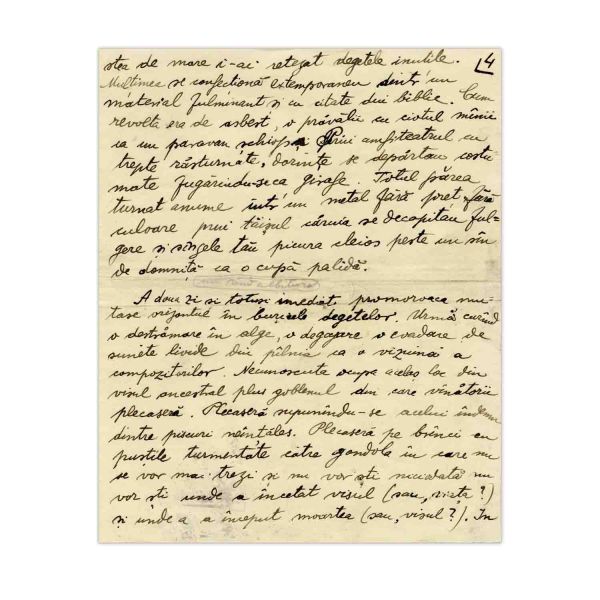 4
stea de mare i-ai retezat degetele inutile.
Mulțimea se confecționă extemporaneu dintr'un
material fulminant și cu citate din biblie. Cum
revolta era de asbest, o prăvăliu cu ciotul mînii
ca un paravan schiop. Prin amfiteatrul cu
trepte răsturnate, dorințe se depărtau costu
mate fugărindu-se ca girafe. Totul părea
turnat anume într'un metal fără preț fără
culoare prin tăișul căruia se decapitau ful-
gere și sîngele tău picura uleios peste un sîn
de domniță ca o cupă palidă.
un rînd alb
A doua zi și totuși imediat, promoroaca mu-
tase orizontul în buricele degetelor. Urmă curînd
o destrămare în alge, o degajare o evadare de
sunete livide din pîlnia ca o vizuină a
compozitorilor. Necunoscuta ocupa același loc din
visul ancestral plus goblenul din care vînătorii
plecaseră. Plecaseră supunîndu-se acelui îndemn
dintre piscuri neînțeles. Plecaseră pe brînci cu
puștile turmentate către gondola în care nu
se vor mai trezi și nu vor ști niciodată nu
vor ști unde a încetat visul (sau, viața?)
și unde a a început moartea (sau, visul?). In